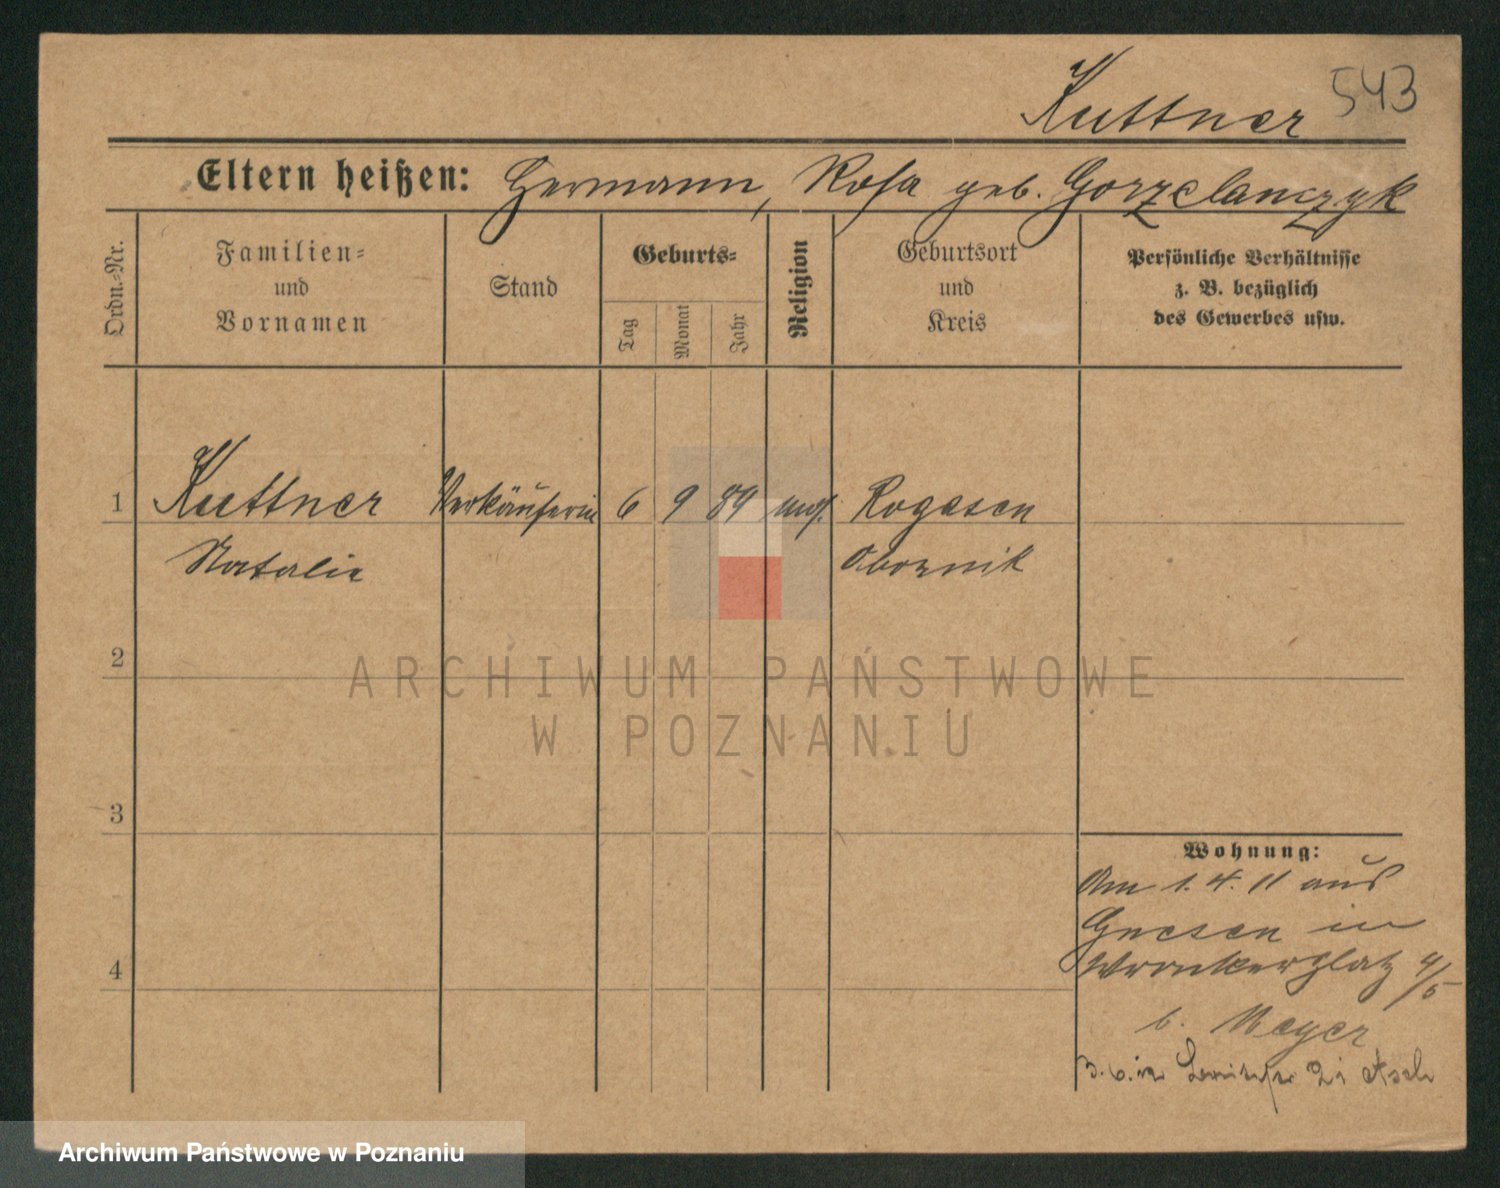 Kuttner 543
Eltern heißen: Hermann, Rosa geb. Gorzelanczyk
Ordn.-Nr.
Familien-
und
Vornamen
Stand
Geburts-
Tag
Monat
Jahr
Religion
Geburtsort
und
Kreis
Persönliche Verhältnisse
z. B. bezüglich
des Gewerbes usw.
1 Kuttner Verkäuferin 6 9 89 mos. Rogasen
Natalie Obornik
2
ARCHIWUM PAŃSTWOWE
W POZNANIU
3
Wohnung:
Am 1. 4. 11 aus
Gnesen in
4 Wronkerplatz 4/5
b. Meyer
3. 6. in 21 Asch
Archiwum Państwowe w Poznaniu